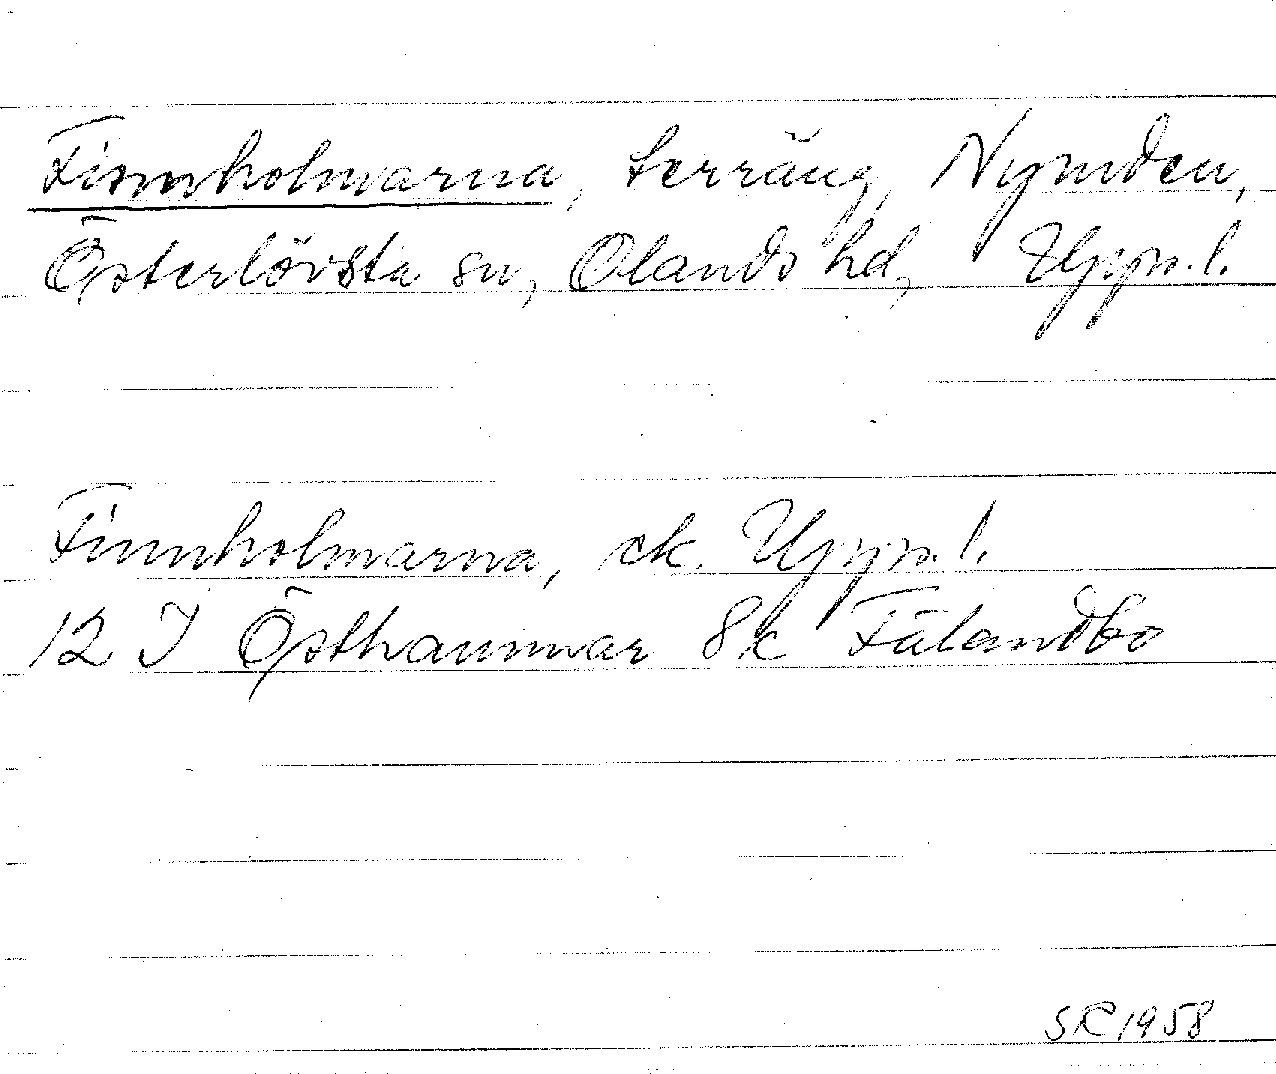 Finnholmarna, terräng, Nymden,
Österlövsta sn, Olands hd, Uppl.
Finnholmarna, ek. Uppl.
12 I Östhammar 8c Fälandbo
SR 1958